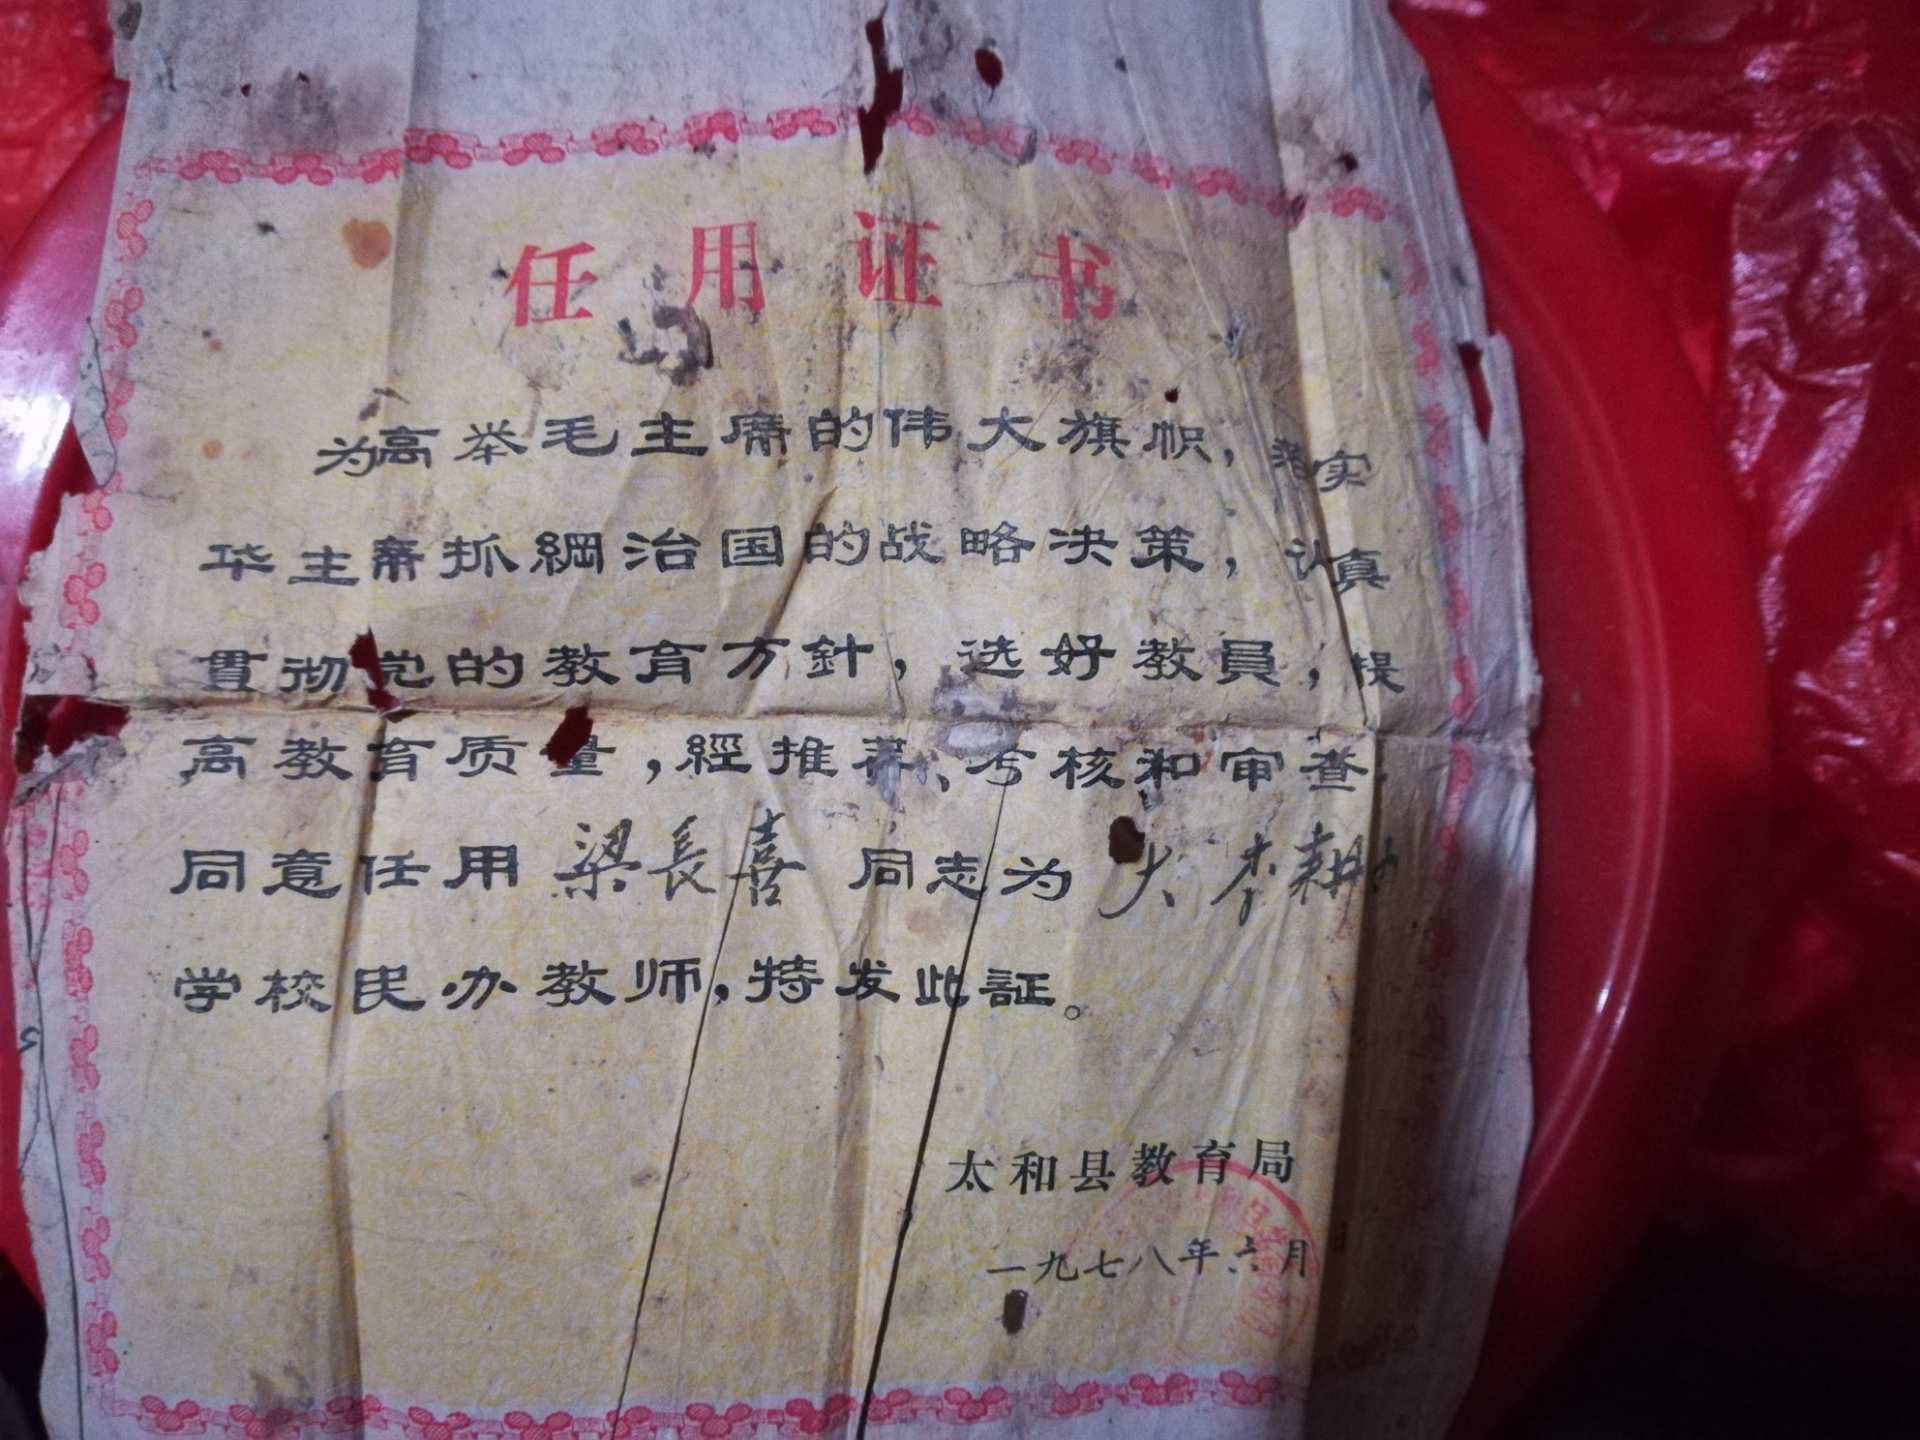 任用证书
为高举毛主席的伟大旗帜，落实
华主席抓綱治国的战略决策，认真
贯彻党的教育方針，选好教員，提
高教育质量，經推荐、考核和审查，
同意任用 梁長喜 同志为 大李耕
学校民办教师，特发此証。
太和县教育局
一九七八年六月